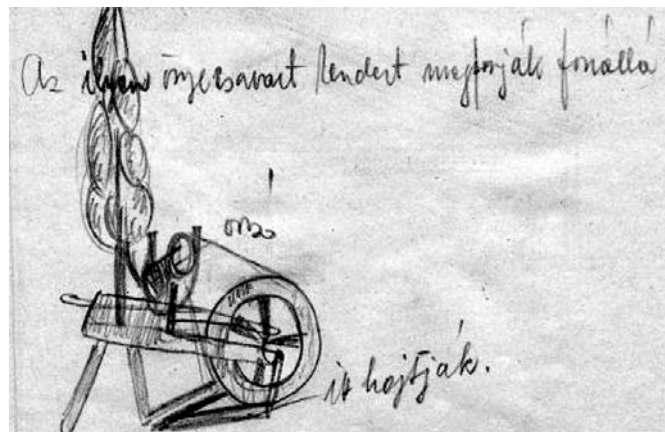 Az ilyen összecsavart kendert megfonják fonállá
orsó
itt hajtják.